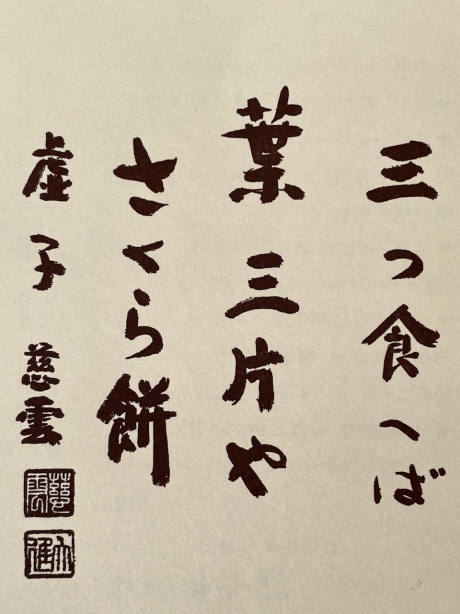 三つ食へば
葉三片や
さくら餅
虚子 慈雲